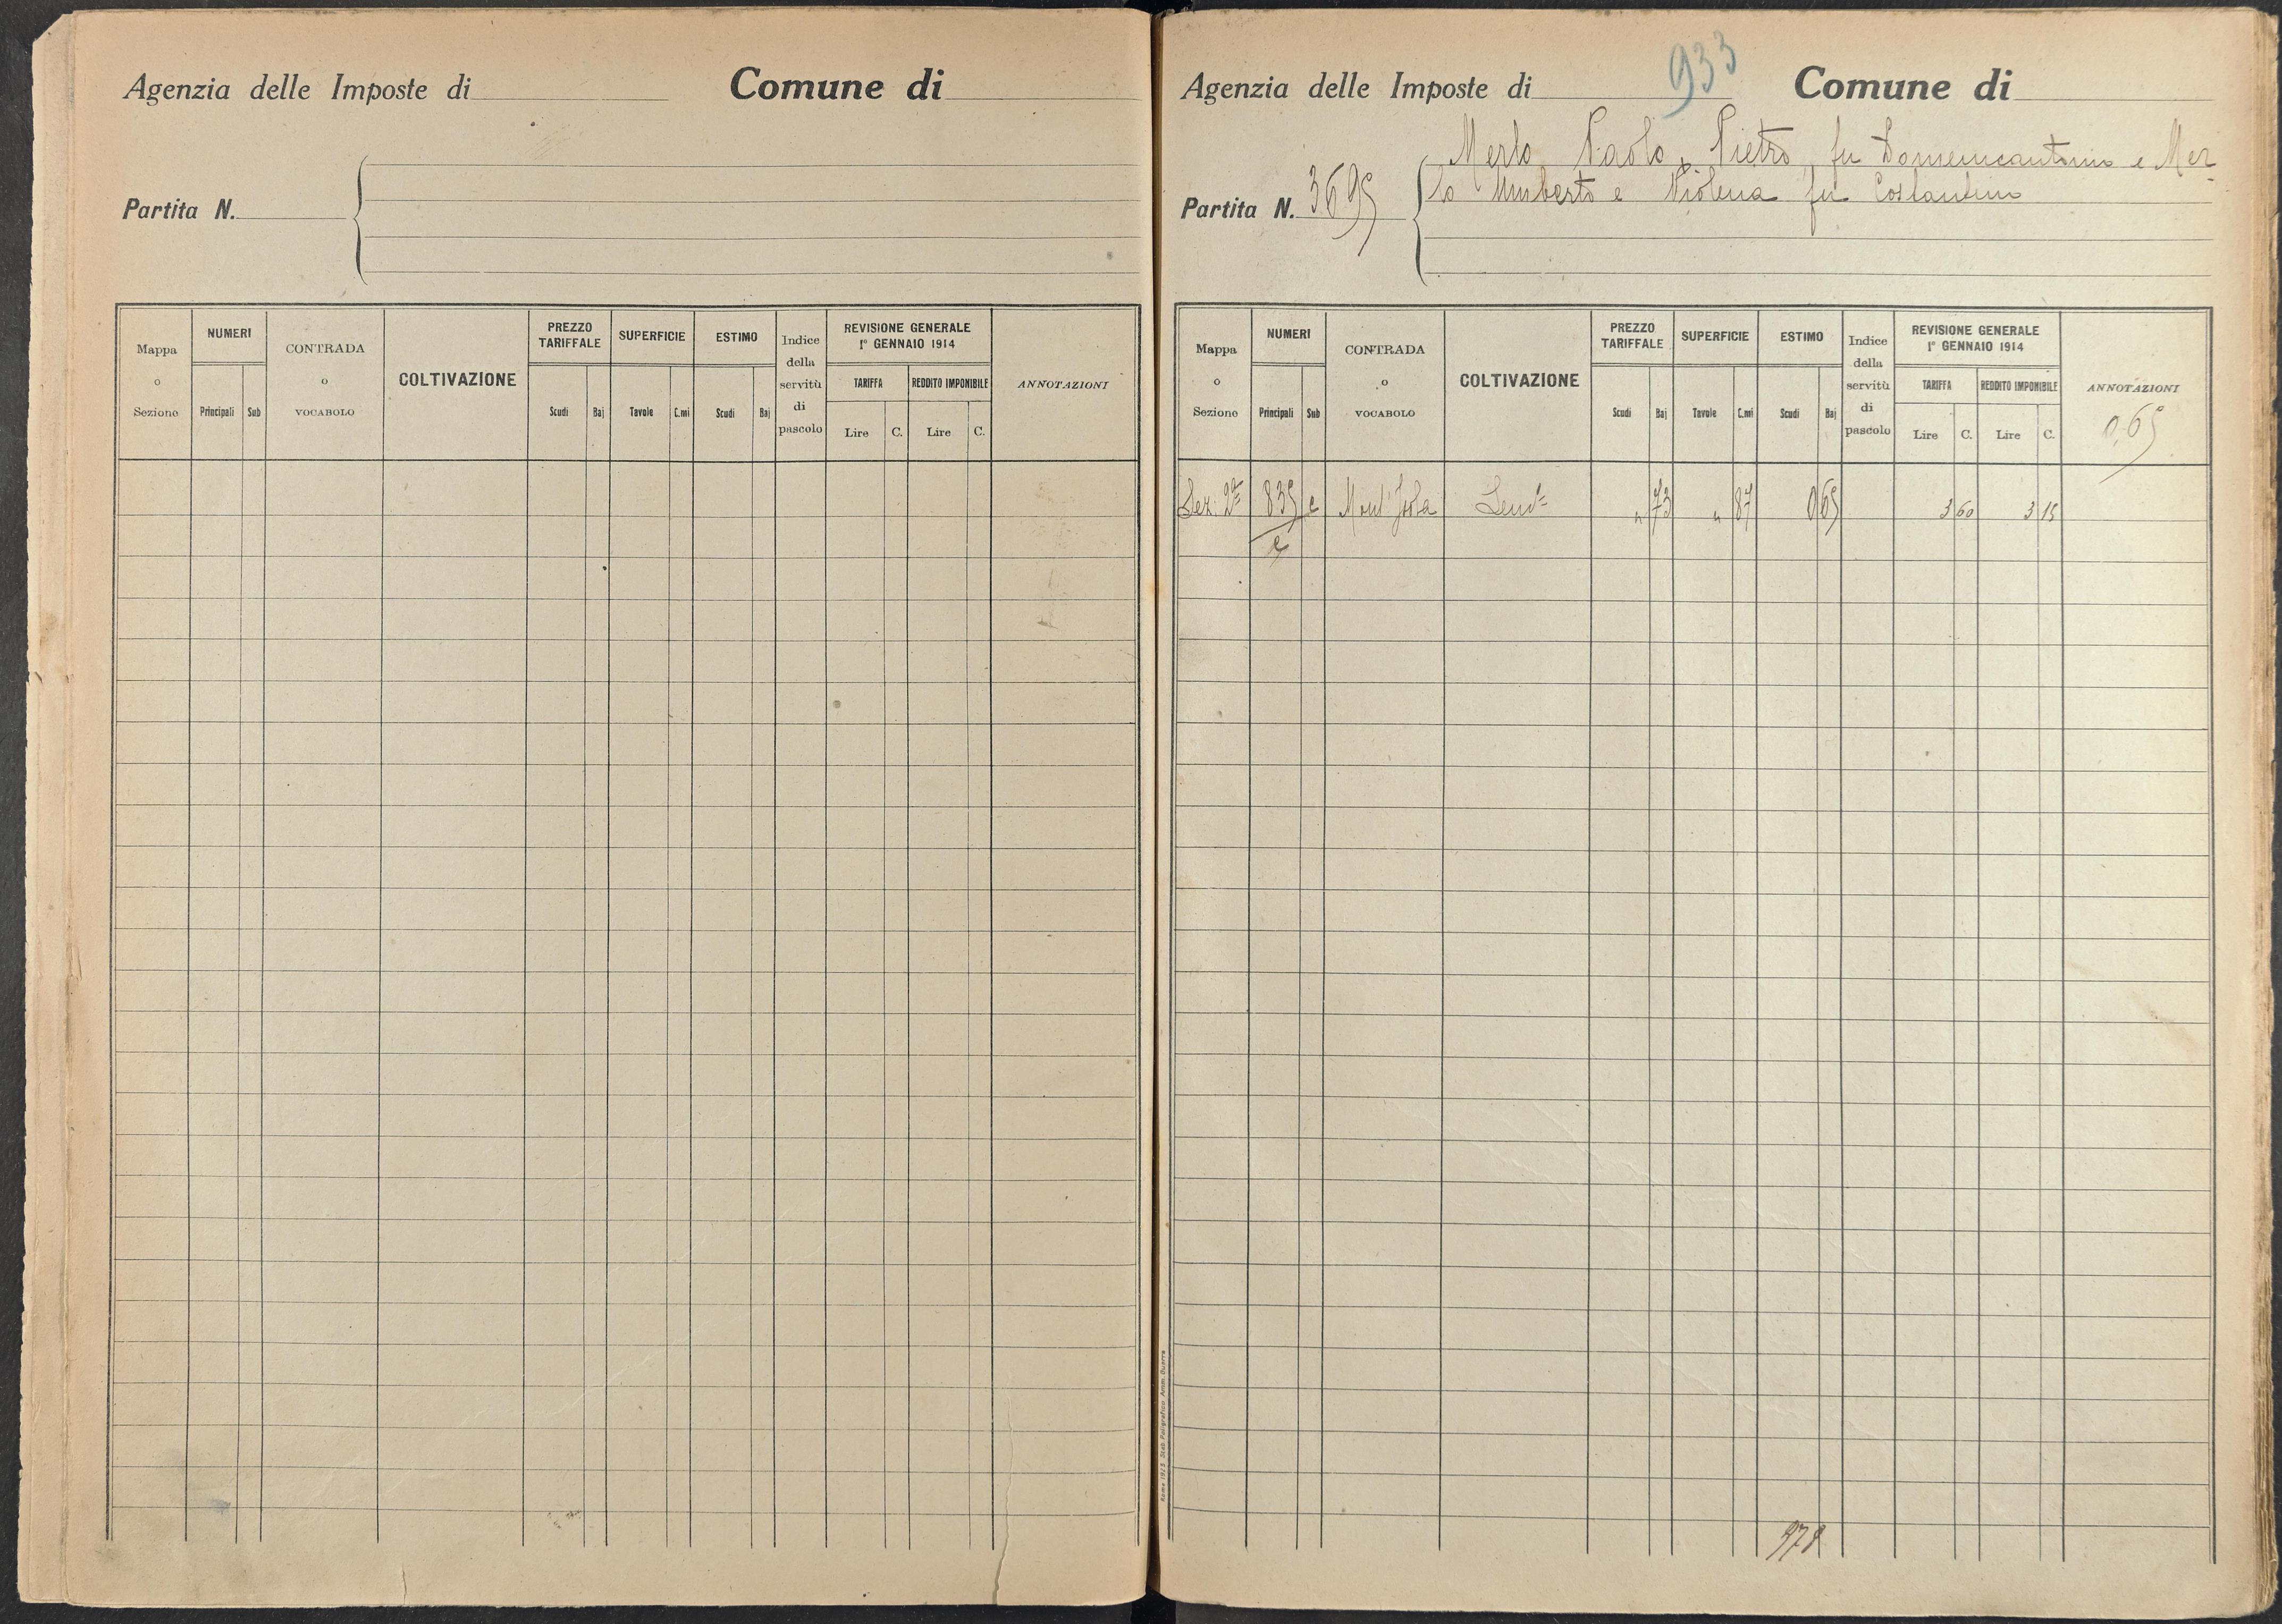 Agenzia delle Imposte di
Comune di
Partita N.
Mappa o Sezione
NUMERI
Principali
Sub
CONTRADA o VOCABOLO
COLTIVAZIONE
PREZZO TARIFFALE
Scudi
Baj
SUPERFICIE
Tavole
C.mi
ESTIMO
Scudi
Baj
Indice della servitù di pascolo
REVISIONE GENERALE
1° GENNAIO 1914
TARIFFA
REDDITO IMPONIBILE
Lire
C.
Lire
C.
ANNOTAZIONI
933
Agenzia delle Imposte di
Comune di
Partita N. 3695
Merlo Paolo, Pietro, fu Domenicantonio e Mer
lo Umberto e Violena fu Costantino
Mappa o Sezione
NUMERI
Principali
Sub
CONTRADA o VOCABOLO
COLTIVAZIONE
PREZZO TARIFFALE
Scudi
Baj
SUPERFICIE
Tavole
C.mi
ESTIMO
Scudi
Baj
Indice della servitù di pascolo
REVISIONE GENERALE
1° GENNAIO 1914
TARIFFA
REDDITO IMPONIBILE
Lire
C.
Lire
C.
ANNOTAZIONI
0,65
Sez: 2ª 835 e Mont' Isola " 73 " 87 0 65 3 60 3 15
Roma 1923 Stab. Poligrafico Amm. Guerra
978